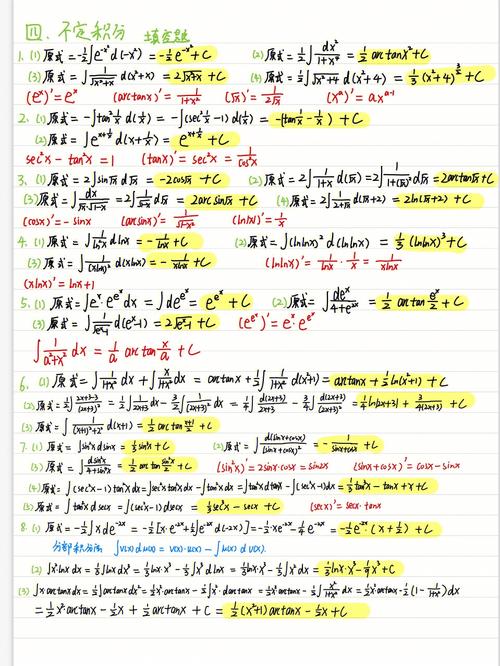 四、不定积分 填空题
1. (1) 原式 = -½∫e^{-x²} d(-x²) = -½e^{-x²} + C (2) 原式 = ½∫dx²/(1+x⁴) = ½ arctanx² + C
(3) 原式 = ∫1/√(x²+x) d(x²+x) = 2√(x²+x) + C (4) 原式 = ½∫√(x²+4) d(x²+4) = ⅓(x²+4)^{3/2} + C
(e^x)' = e^x (arctanx)' = 1/(1+x²) (√x)' = 1/(2√x) (x^a)' = ax^{a-1}
2. (1) 原式 = -∫tan²(1/x) d(1/x) = -∫(sec²(1/x) - 1) d(1/x) = -(tan(1/x) - 1/x) + C
(2) 原式 = ∫e^{x+1/x} d(x+1/x) = e^{x+1/x} + C
sec²x - tan²x = 1 (tanx)' = sec²x = 1/cos²x
3. (1) 原式 = 2∫sin√x d√x = -2cos√x + C (2) 原式 = 2∫1/(1+x) d(√x) = 2∫1/(1+(√x)²) d√x = 2arctan√x + C
(3) 原式 = ∫dx/(√x·√(1-x)) = 2∫1/√(1-x) d√x = 2arcsin√x + C (4) 原式 = 2∫1/(2+√x) d(√x+2) = 2ln(√x+2) + C
(cosx)' = -sinx (arcsinx)' = 1/√(1-x²) (ln|x|)' = 1/x
4. (1) 原式 = ∫1/ln²x dlnx = -1/lnx + C (2) 原式 = ∫(lnlnx)² d(lnlnx) = ⅓(lnlnx)³ + C
(3) 原式 = ∫1/(xlnx)² d(xlnx) = -1/(xlnx) + C (lnlnx)' = 1/lnx · 1/x = 1/(xlnx)
(xlnx)' = lnx+1
5. (1) 原式 = ∫e^x·e^{e^x} dx = ∫de^{e^x} = e^{e^x} + C (2) 原式 = ∫de^x/(4+e^{2x}) = ½ arctan(e^x/2) + C
(3) 原式 = ∫1/√(e^x-1) d(e^x-1) = 2√(e^x-1) + C (e^{e^x})' = e^x·e^{e^x}
∫1/(a²+x²) dx = 1/a arctan(x/a) + C
6. (1) 原式 = ∫1/(1+x²) dx + ∫x/(1+x²) dx = arctanx + ½∫1/(1+x²) d(x²+1) = arctanx + ½ln(x²+1) + C
(2) 原式 = ½∫(2x+3-3)/(2x+3)² dx = ½∫1/(2x+3) dx - 3/2∫1/(2x+3)² dx = ¼∫d(2x+3)/(2x+3) - ¾∫d(2x+3)/(2x+3)² = ¼ln|2x+3| + 3/(4(2x+3)) + C
(3) 原式 = ∫1/((x+1)²+2²) d(x+1) = ½arctan((x+1)/2) + C
7. (1) 原式 = ∫sin²x dsinx = ⅓sin³x + C (2) 原式 = ∫d(sinx+cosx)/(sinx+cosx)² = -1/(sinx+cosx) + C
(3) 原式 = ∫dsin²x/(4+sin⁴x) = ½arctan(sin²x/2) + C (sin²x)' = 2sinx·cosx = sin2x (sinx+cosx)' = cosx-sinx
(4) 原式 = ∫(sec²x-1)tan²x dx = ∫sec²x tan²x dx - ∫tan²x dx = ∫tan²x dtanx - ∫(sec²x-1)dx = ⅓tan³x - tanx + x + C
(5) 原式 = ∫tan²x dsecx = ∫(sec²x-1)dsecx = ⅓sec³x - secx + C (secx)' = secx·tanx
8. (1) 原式 = -½∫x de^{-2x} = -½[x·e^{-2x} + ½∫e^{-2x} d(-2x)] = -½·xe^{-2x} - ¼e^{-2x} = -½e^{-2x}·(x+½) + C
分部积分法 ∫v(x) du(x) = v(x)·u(x) - ∫u(x) dv(x).
(2) ∫x²lnx dx = ⅓∫lnx dx³ = ⅓lnx·x³ - ⅓∫x³ dlnx = ⅓lnx·x³ - ⅓∫x² dx = ⅓lnx·x³ - 1/9x³ + C
(3) ∫x·arctanx dx = ½∫arctanx dx² = ½x²·arctanx - ½∫x²·darctanx = ½x²arctanx - ½∫x²/(1+x²) dx = ½x²·arctanx - ½∫(1 - 1/(1+x²))dx
= ½x²arctanx - ½x + ½arctanx + C = ½(x²+1)arctanx - ½x + C